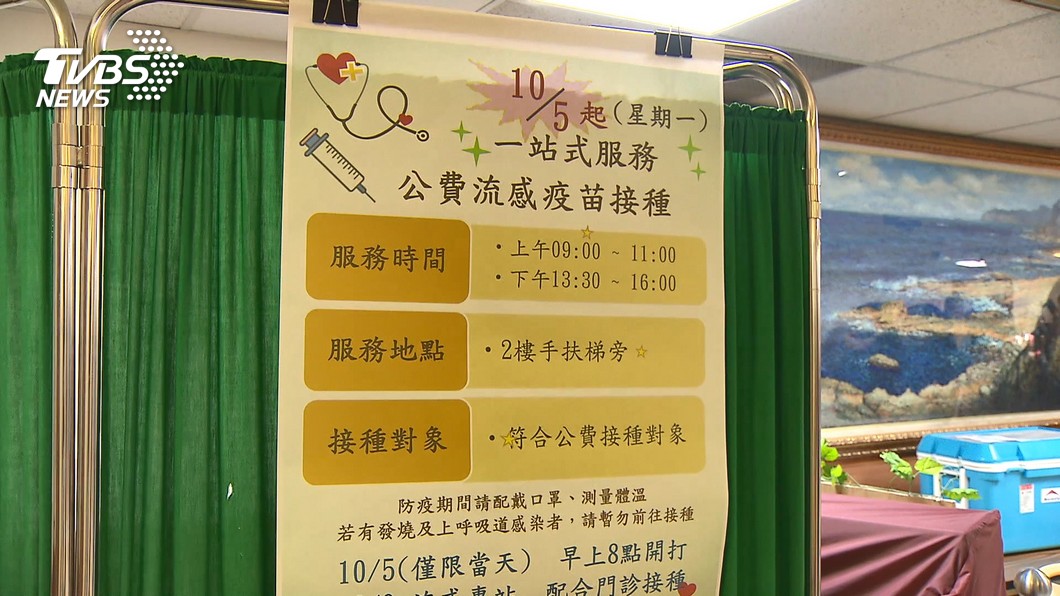 TVBS
NEWS
10/5起(星期一)
一站式服務
公費流感疫苗接種
服務時間
・上午09:00 ~ 11:00
・下午13:30 ~ 16:00
服務地點
・2樓手扶梯旁
接種對象
・符合公費接種對象
防疫期間請配戴口罩、測量體溫
若有發燒及上呼吸道感染者，請暫勿前往接種
10/5(僅限當天) 早上8點開打
配合門診接種